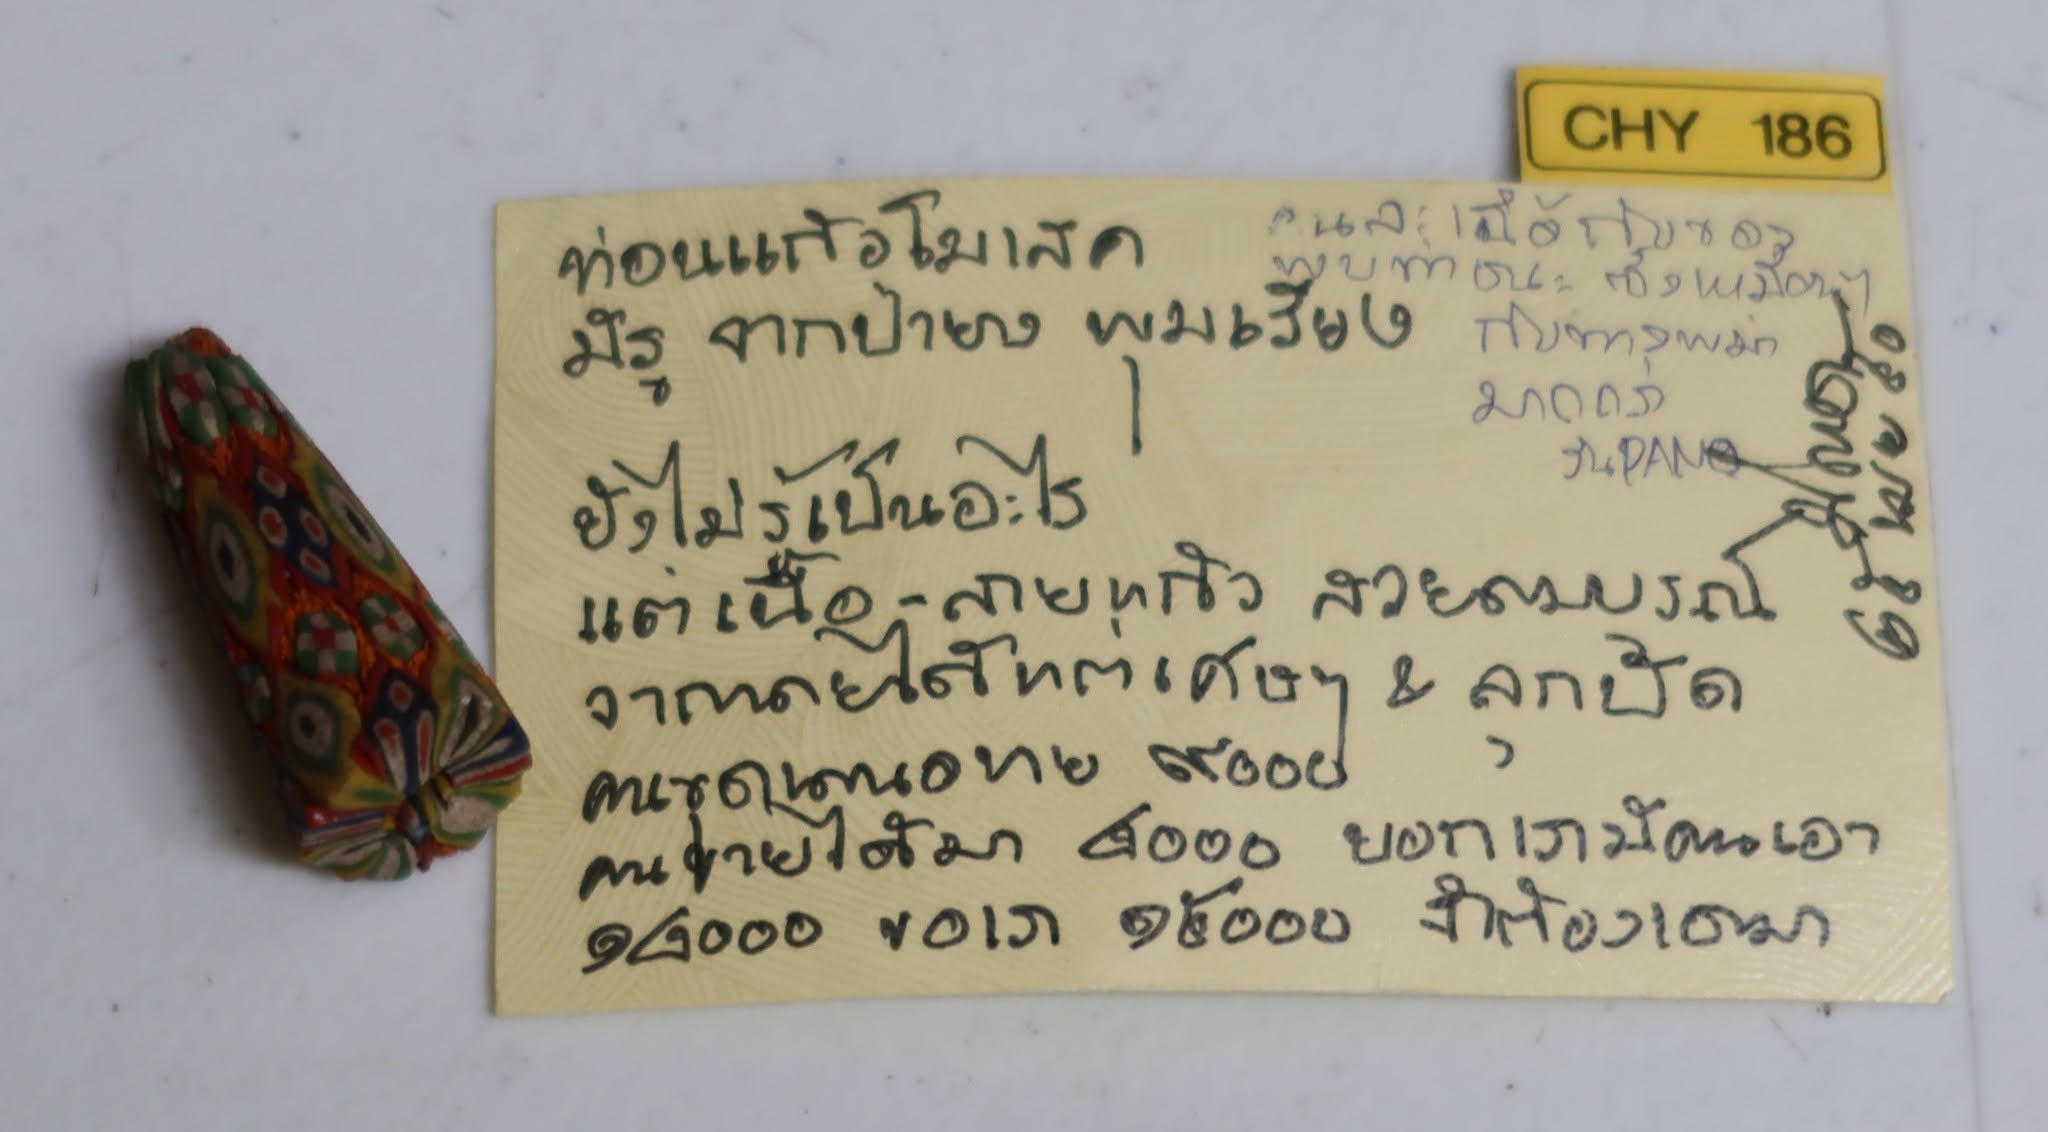 CHY 186
ท่อนแก้วโมเสค
มีรู จากป้ายง พุมเรียง
ยังไม่รู้เป็นอะไร
แต่เนื้อ - ลายแก้ว สวยสมบูรณ์
จากเคยได้แต่เศษๆ & ลูกปัด
คนขุดนอนขาย ๙๐๐๐
คนขายได้มา ๕๐๐๐ บอกเรามีคนเอา
๑๔๐๐๐ ขอเรา ๑๕๐๐๐ จำต้องเอามา
คนละเนื้อกับของ
พบท่าชนะ ซึ่งเหมือนๆ
กับทางพม่า
มากกว่า
PAN
๒๒ เมย ๔๐